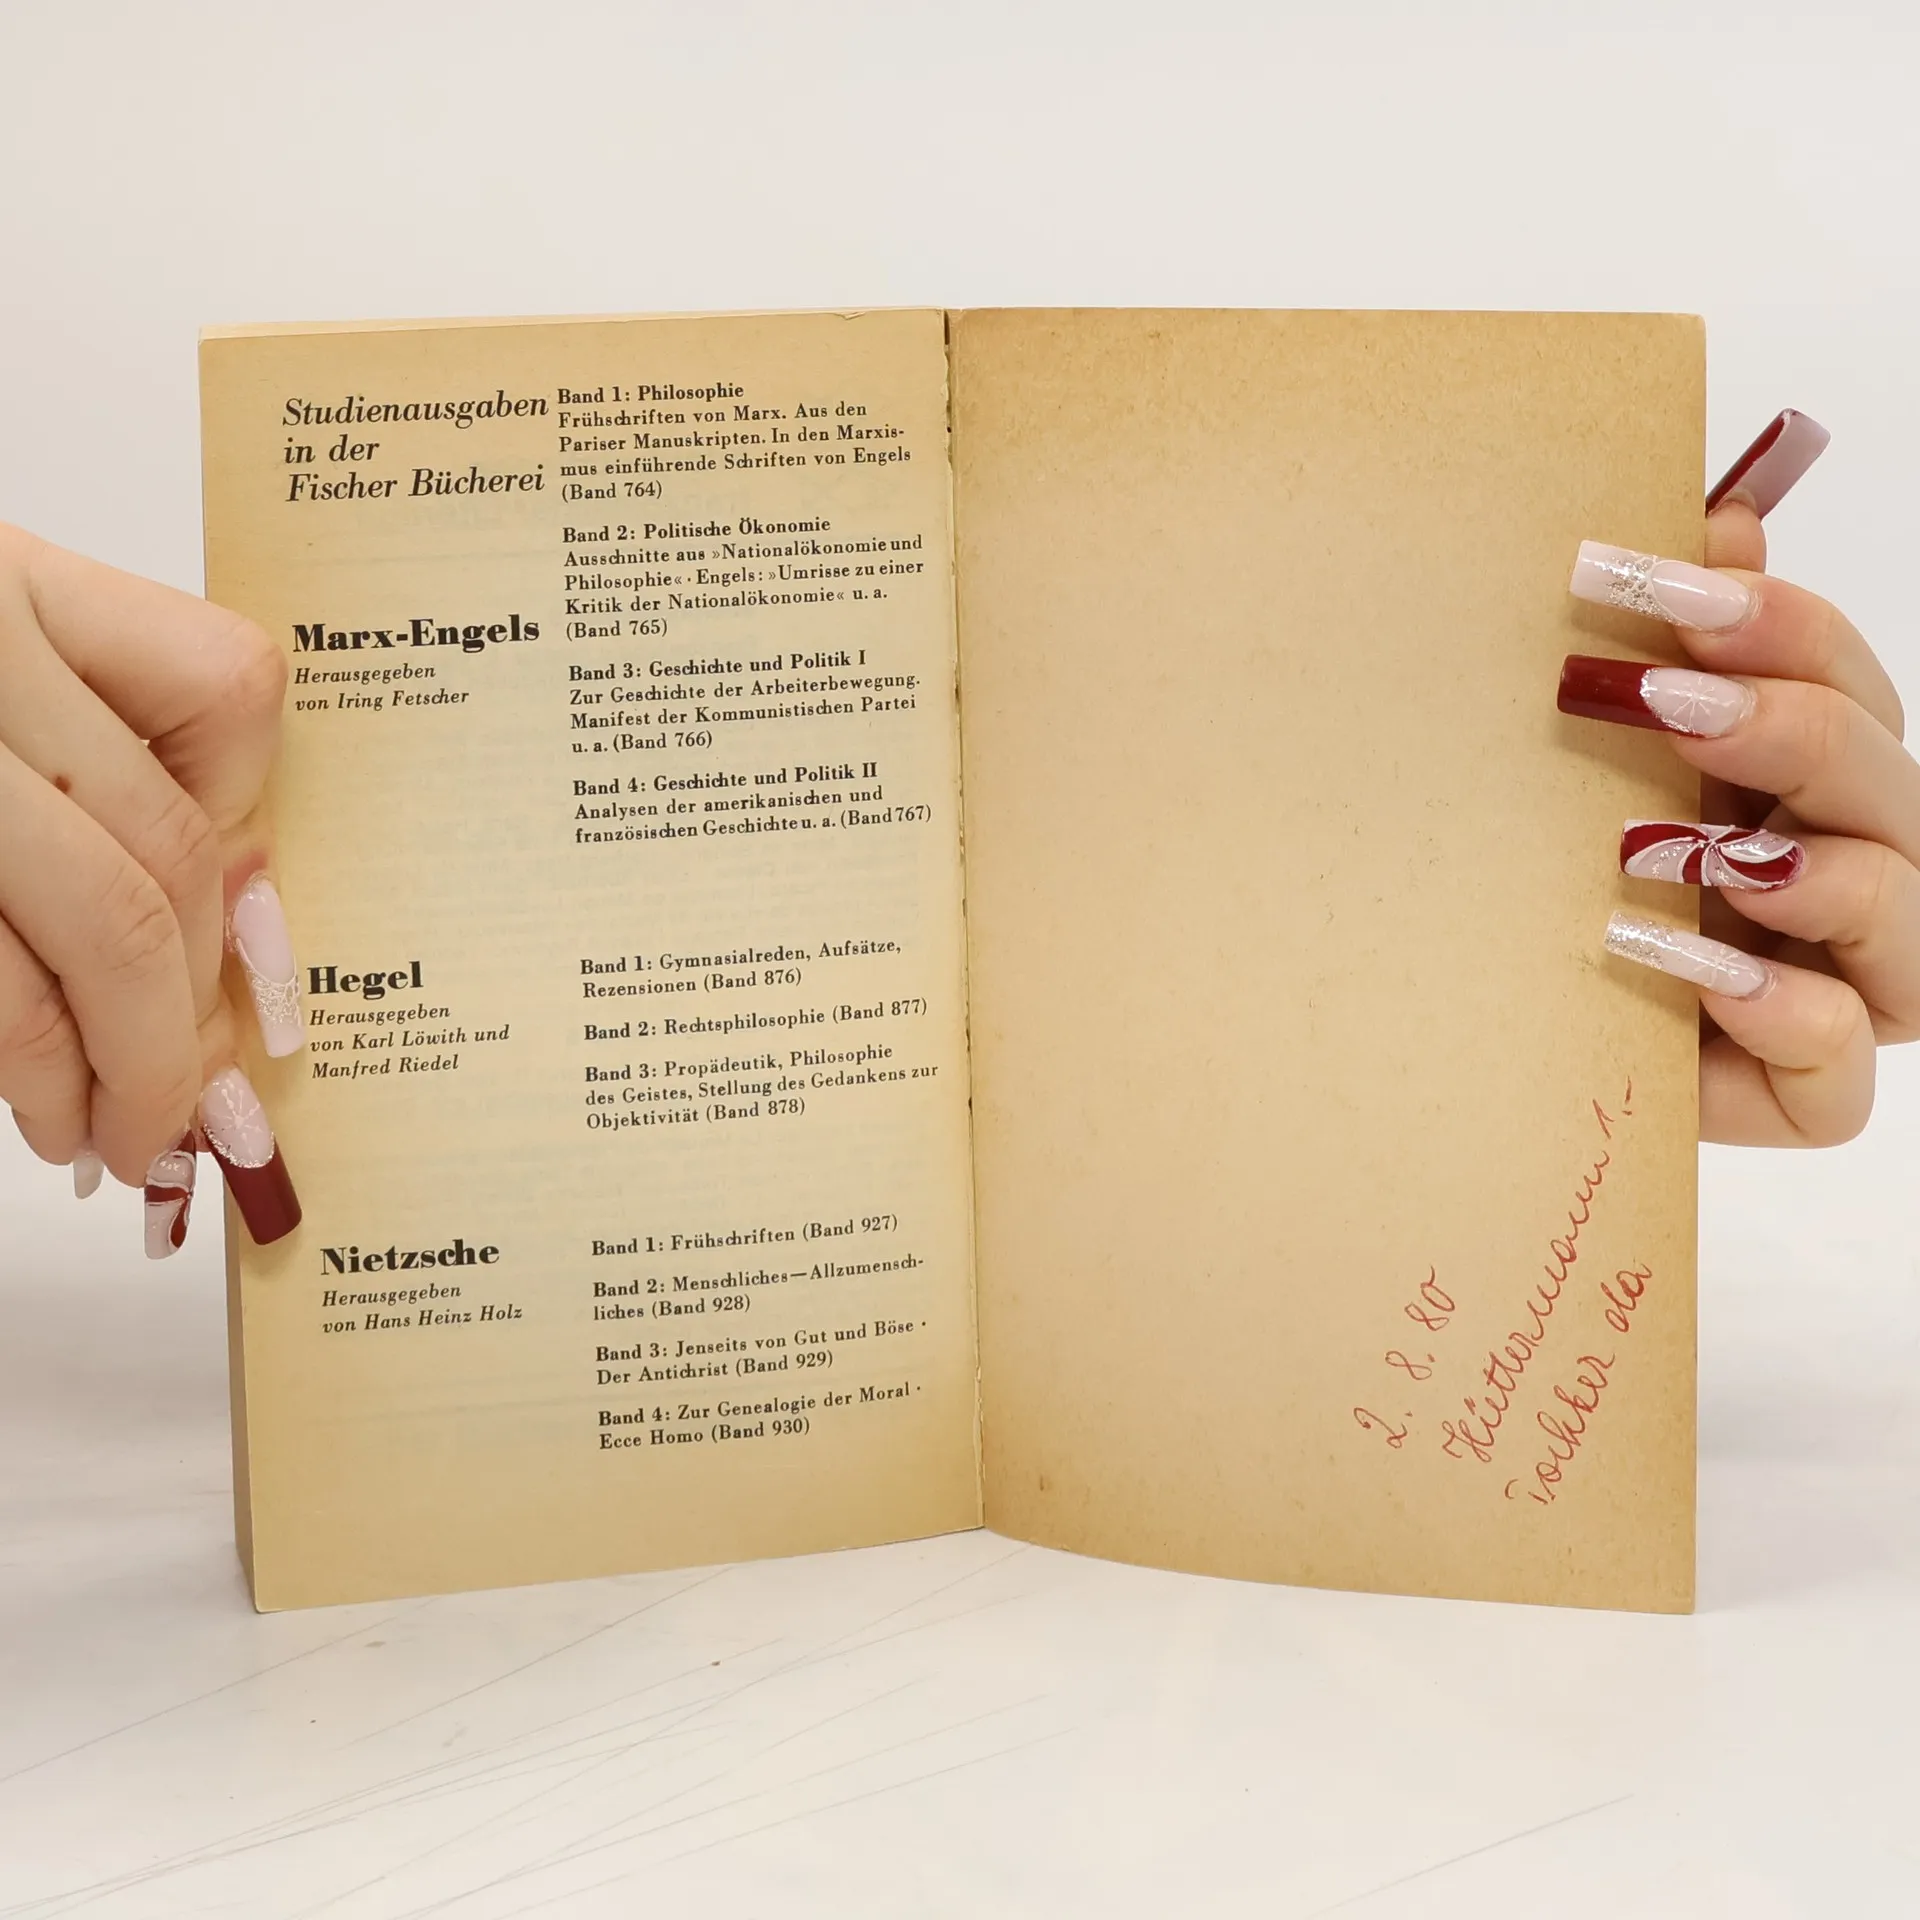 Studienausgaben
in der
Fischer Bücherei
Marx-Engels
Herausgegeben
von Iring Fetscher
Band 1: Philosophie
Frühschriften von Marx. Aus den
Pariser Manuskripten. In den Marxis-
mus einführende Schriften von Engels
(Band 764)
Band 2: Politische Ökonomie
Ausschnitte aus »Nationalökonomie und
Philosophie« · Engels: »Umrisse zu einer
Kritik der Nationalökonomie« u. a.
(Band 765)
Band 3: Geschichte und Politik I
Zur Geschichte der Arbeiterbewegung.
Manifest der Kommunistischen Partei
u. a. (Band 766)
Band 4: Geschichte und Politik II
Analysen der amerikanischen und
französischen Geschichte u. a. (Band 767)
Hegel
Herausgegeben
von Karl Löwith und
Manfred Riedel
Band 1: Gymnasialreden, Aufsätze,
Rezensionen (Band 876)
Band 2: Rechtsphilosophie (Band 877)
Band 3: Propädeutik, Philosophie
des Geistes, Stellung des Gedankens zur
Objektivität (Band 878)
Nietzsche
Herausgegeben
von Hans Heinz Holz
Band 1: Frühschriften (Band 927)
Band 2: Menschliches—Allzumensch-
liches (Band 928)
Band 3: Jenseits von Gut und Böse ·
Der Antichrist (Band 929)
Band 4: Zur Genealogie der Moral ·
Ecce Homo (Band 930)
2. 8. 80
1.-